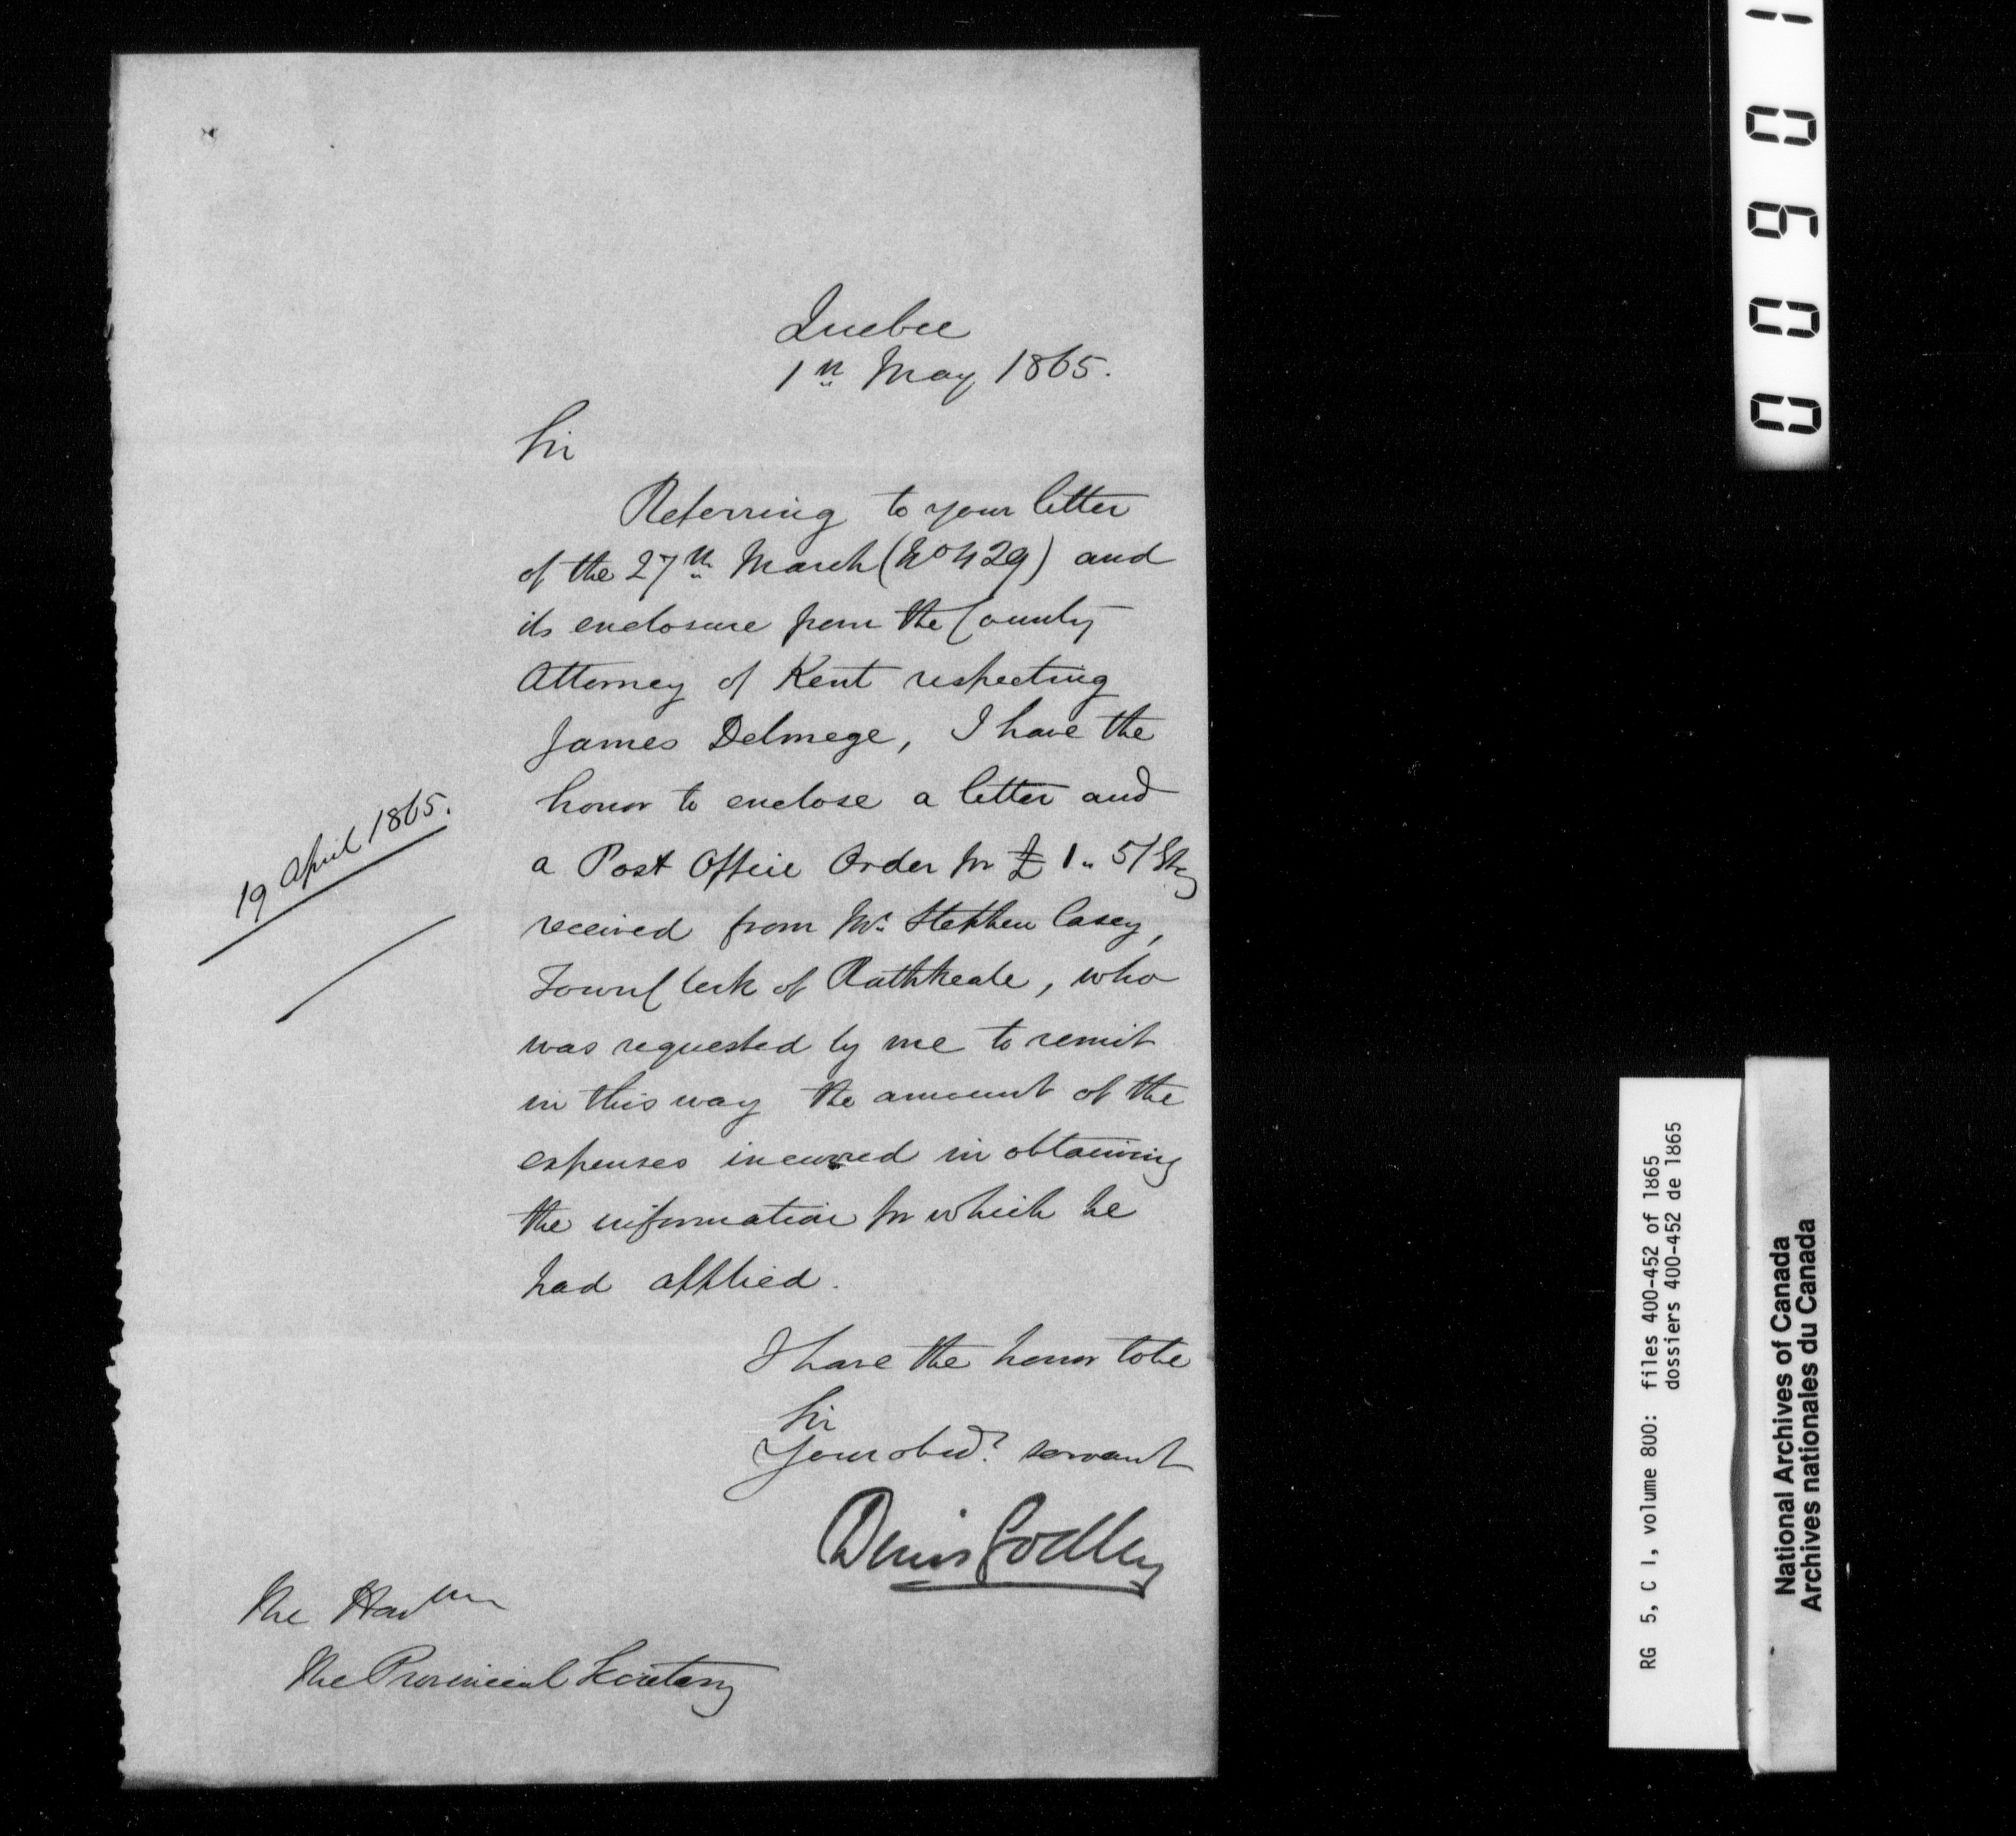 Quebec
1st May 1865.
Sir
Referring to your letter
of the 27th March (No 429) and
its enclosure from the County
Attorney of Kent respecting
James Delmege, I have the
honor to enclose a letter and
19 April 1865.
a Post Office Order for £1 " 5/ Stg
received from Mr. Stephen Casey,
Town Clerk of Rathkeale, who
was requested by me to remit
in this way the amount of the
expenses incurred in obtaining
the information for which he
had applied.
I have the honor to be
Sir
Your obedt. servant
Denis Godley
The Honble
The Provincial Secretary
000901
RG 5, C 1, volume 800: files 400-452 of 1865
dossiers 400-452 de 1865
National Archives of Canada
Archives nationales du Canada